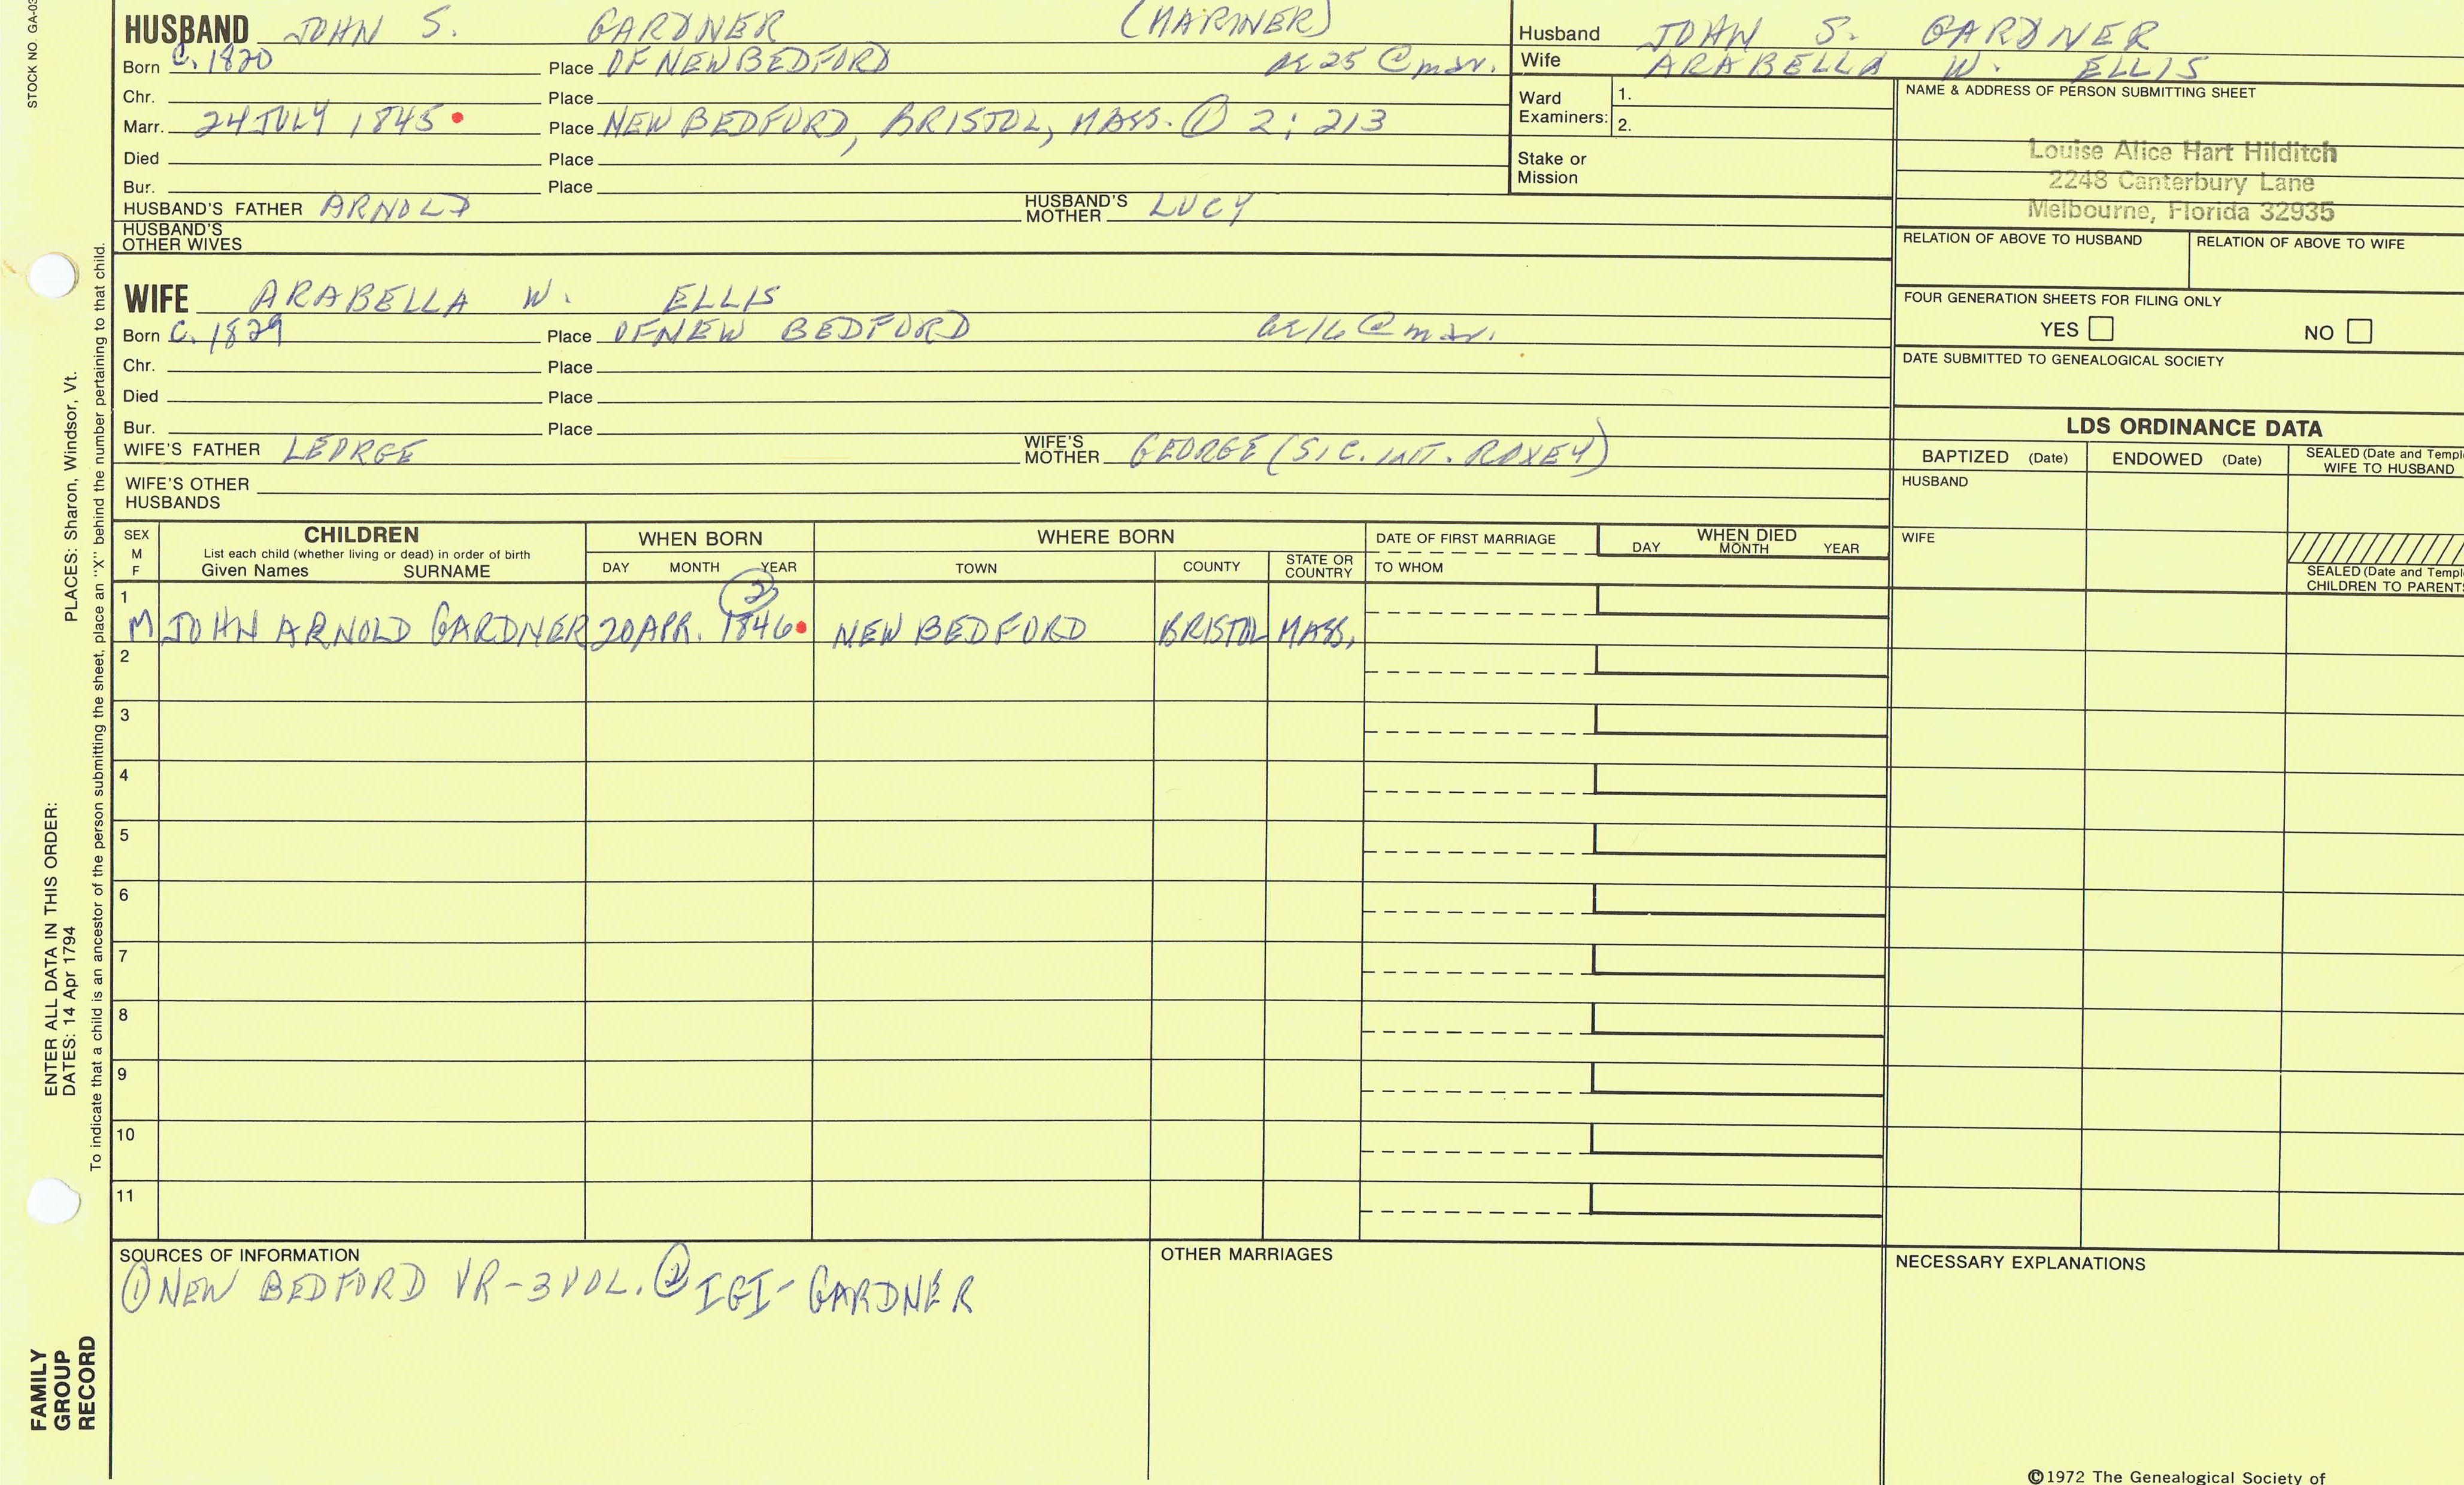 STOCK NO. GA-03
HUSBAND JOHN S. GARDNER (MARINER)
Born C. 1820 Place OF NEW BEDFORD ae 25 @ mar.
Chr. Place
Marr. 24 JULY 1845 Place NEW BEDFORD, BRISTOL, MASS. ① 2: 213
Died Place
Bur. Place
HUSBAND'S FATHER ARNOLD HUSBAND'S MOTHER LUCY
HUSBAND'S OTHER WIVES
Husband JOHN S. GARDNER
Wife ARABELLA W. ELLIS
Ward Examiners: 1.
2.
Stake or Mission
NAME & ADDRESS OF PERSON SUBMITTING SHEET
Louise Alice Hart Hilditch
2248 Canterbury Lane
Melbourne, Florida 32935
RELATION OF ABOVE TO HUSBAND RELATION OF ABOVE TO WIFE
FOUR GENERATION SHEETS FOR FILING ONLY
YES NO
DATE SUBMITTED TO GENEALOGICAL SOCIETY
WIFE ARABELLA W. ELLIS
Born C. 1829 Place OF NEW BEDFORD ae 16 @ mar.
Chr. Place
Died Place
Bur. Place
WIFE'S FATHER LEDRGE WIFE'S MOTHER GEORGE (SIC. INT. ROXEY)
WIFE'S OTHER HUSBANDS
LDS ORDINANCE DATA
BAPTIZED (Date) ENDOWED (Date) SEALED (Date and Templ
WIFE TO HUSBAND
HUSBAND
WIFE
SEALED (Date and Templ
CHILDREN TO PARENTS
SEX
M
F
CHILDREN
List each child (whether living or dead) in order of birth
Given Names SURNAME
WHEN BORN
DAY MONTH YEAR
WHERE BORN
TOWN COUNTY STATE OR COUNTRY
DATE OF FIRST MARRIAGE
TO WHOM
WHEN DIED
DAY MONTH YEAR
1
②
M JOHN ARNOLD GARDNER 20 APR. 1846 NEW BEDFORD BRISTOL MASS.
2
3
4
5
6
7
8
9
10
11
SOURCES OF INFORMATION
① NEW BEDFORD VR-3 VOL. ② IGI- GARDNER
OTHER MARRIAGES
NECESSARY EXPLANATIONS
©1972 The Genealogical Society of
ENTER ALL DATA IN THIS ORDER:
DATES: 14 Apr 1794 PLACES: Sharon, Windsor, Vt.
To indicate that a child is an ancestor of the person submitting the sheet, place an "X" behind the number pertaining to that child.
FAMILY
GROUP
RECORD